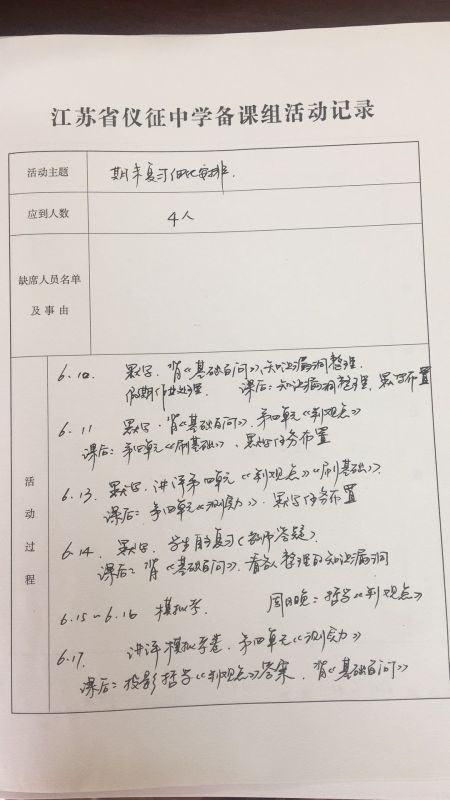 江苏省仪征中学备课组活动记录
活动主题
期末复习细化安排.
应到人数
4人
缺席人员名单
及事由
活动过程
6.10. 默写、背《基础百问》、知识漏洞整理、
假期作业处理. 课后:知识漏洞整理、默写布置
6.11 默写、背《基础百问》、第四单元《刷观点》
课后:第四单元《刷基础》、默写任务布置
6.13. 默写、讲评第四单元《刷观点》《刷基础》.
课后:第四单元《测反力》、默写任务布置
6.14. 默写、学生自主复习(教师答疑).
课后:背《基础百问》、看各人整理的知识漏洞
6.15~6.16 模拟考. 周日晚:哲学《刷观点》
6.17. 讲评模拟考卷、第四单元《测反力》
课后:投影哲学《刷观点》答案、背《基础百问》